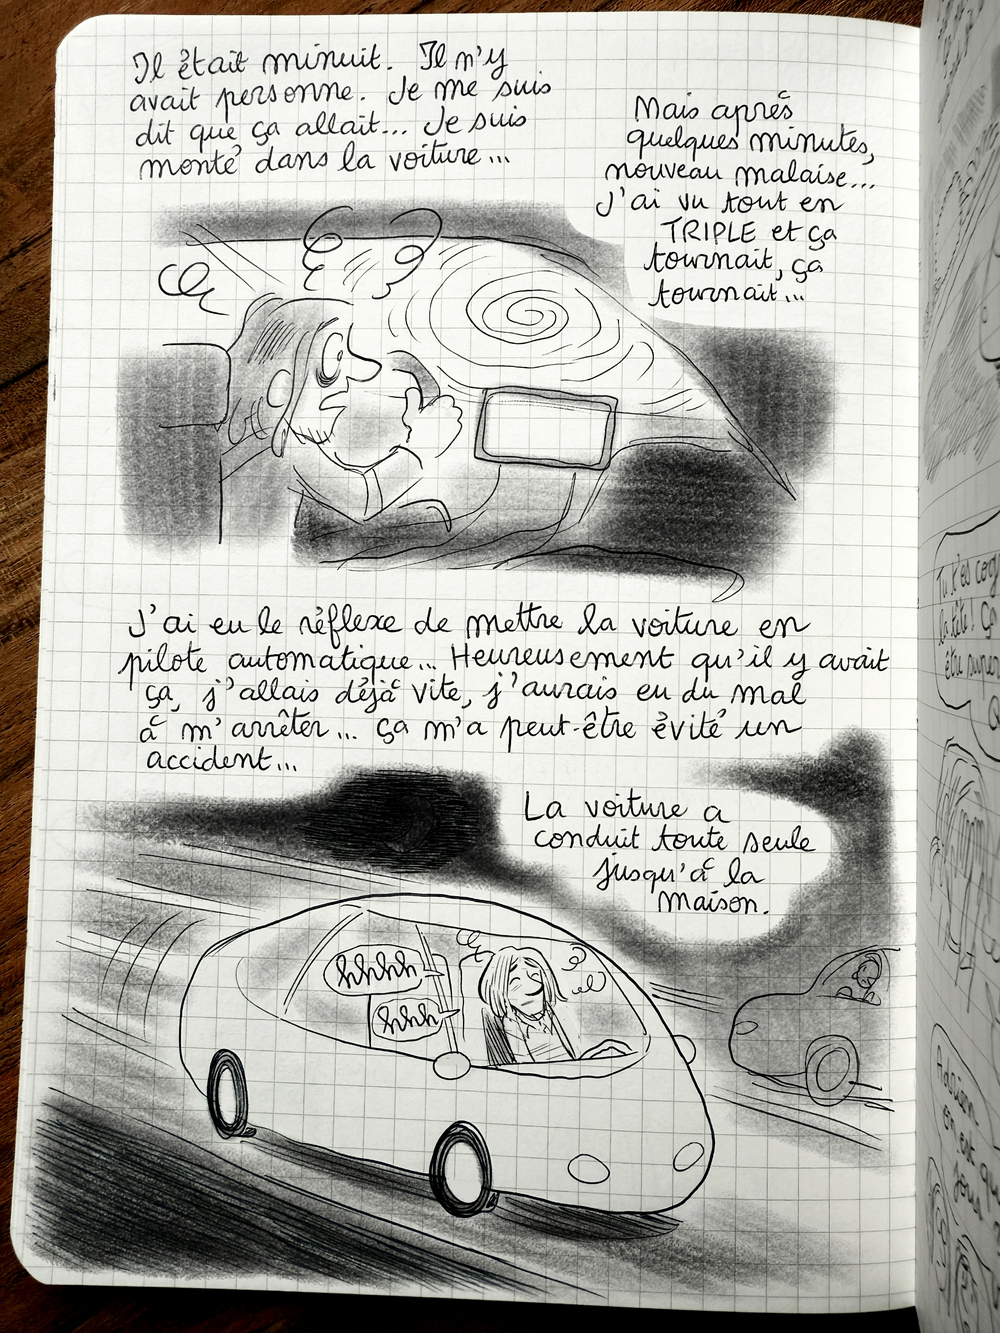 Il était minuit. Il n'y
avait personne. Je me suis
dit que ça allait... Je suis
monté dans la voiture...
Mais après
quelques minutes,
nouveau malaise...
j'ai vu tout en
TRIPLE et ça
tournait, ça
tournait...
J'ai eu le réflexe de mettre la voiture en
pilote automatique... Heureusement qu'il y avait
ça, j'allais déjà vite, j'aurais eu du mal
à m'arrêter... ça m'a peut-être évité un
accident...
La voiture a
conduit toute seule
jusqu'à la
maison.
hhhh
hhh
Tu t'es
la tête ! Ça
être
Adrien
en est